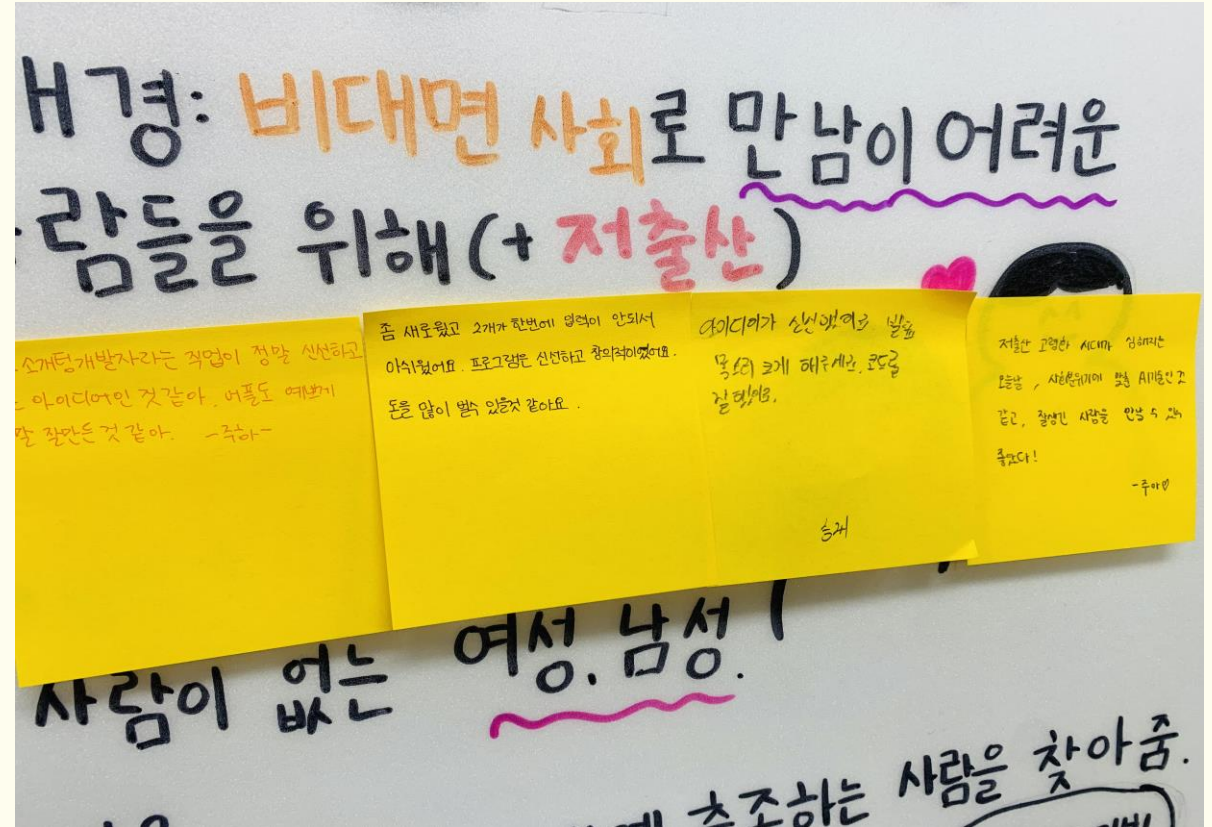 경: 비대면 사회로 만남이 어려운
람들을 위해(+ 저출산)
소개팅개발자라는 직업이 정말 신선하고
아이디어인 것 같아. 어플도 예쁘게
잘만든 것 같아. -주하-
좀 새로웠고 2개가 한번에 입력이 안되서
아쉬웠어요. 프로그램은 신선하고 창의적이였어요.
돈을 많이 벌수 있을것 같아요.
아이디어가 신선했어요 발표
목소리 크게 해주세요. 코드를
잘 짰어요.
저출산 고령화 시대가 심해지는
오늘날, 사회분위기에 맞춘 AI기술인 것
같고, 잘생긴 사람을 만날 수 있어
좋았다!
-주아♡
사람이 없는 여성, 남성.
추조하는 사람을 찾아줌.